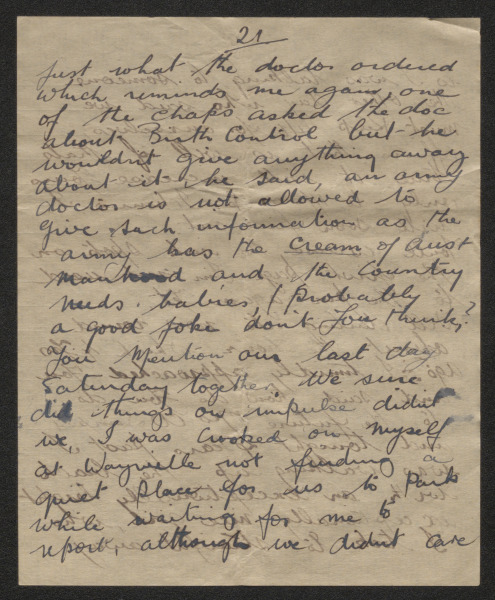 21
just what the doctor ordered
which reminds me again, one
of the chaps asked the doc
about Birth Control but he
wouldn't give anything away
about it he said, an army
doctor is not allowed to
give such information as the
army has the cream of Aust
manhood and the country
needs babies, (probably
a good joke don't you think?
You mention our last day
Saturday together, We sure
did things on impulse didn't
we I was crooked on myself
at Wayville not finding a
quiet place for us to park
while waiting for me to
report, although we didn't care